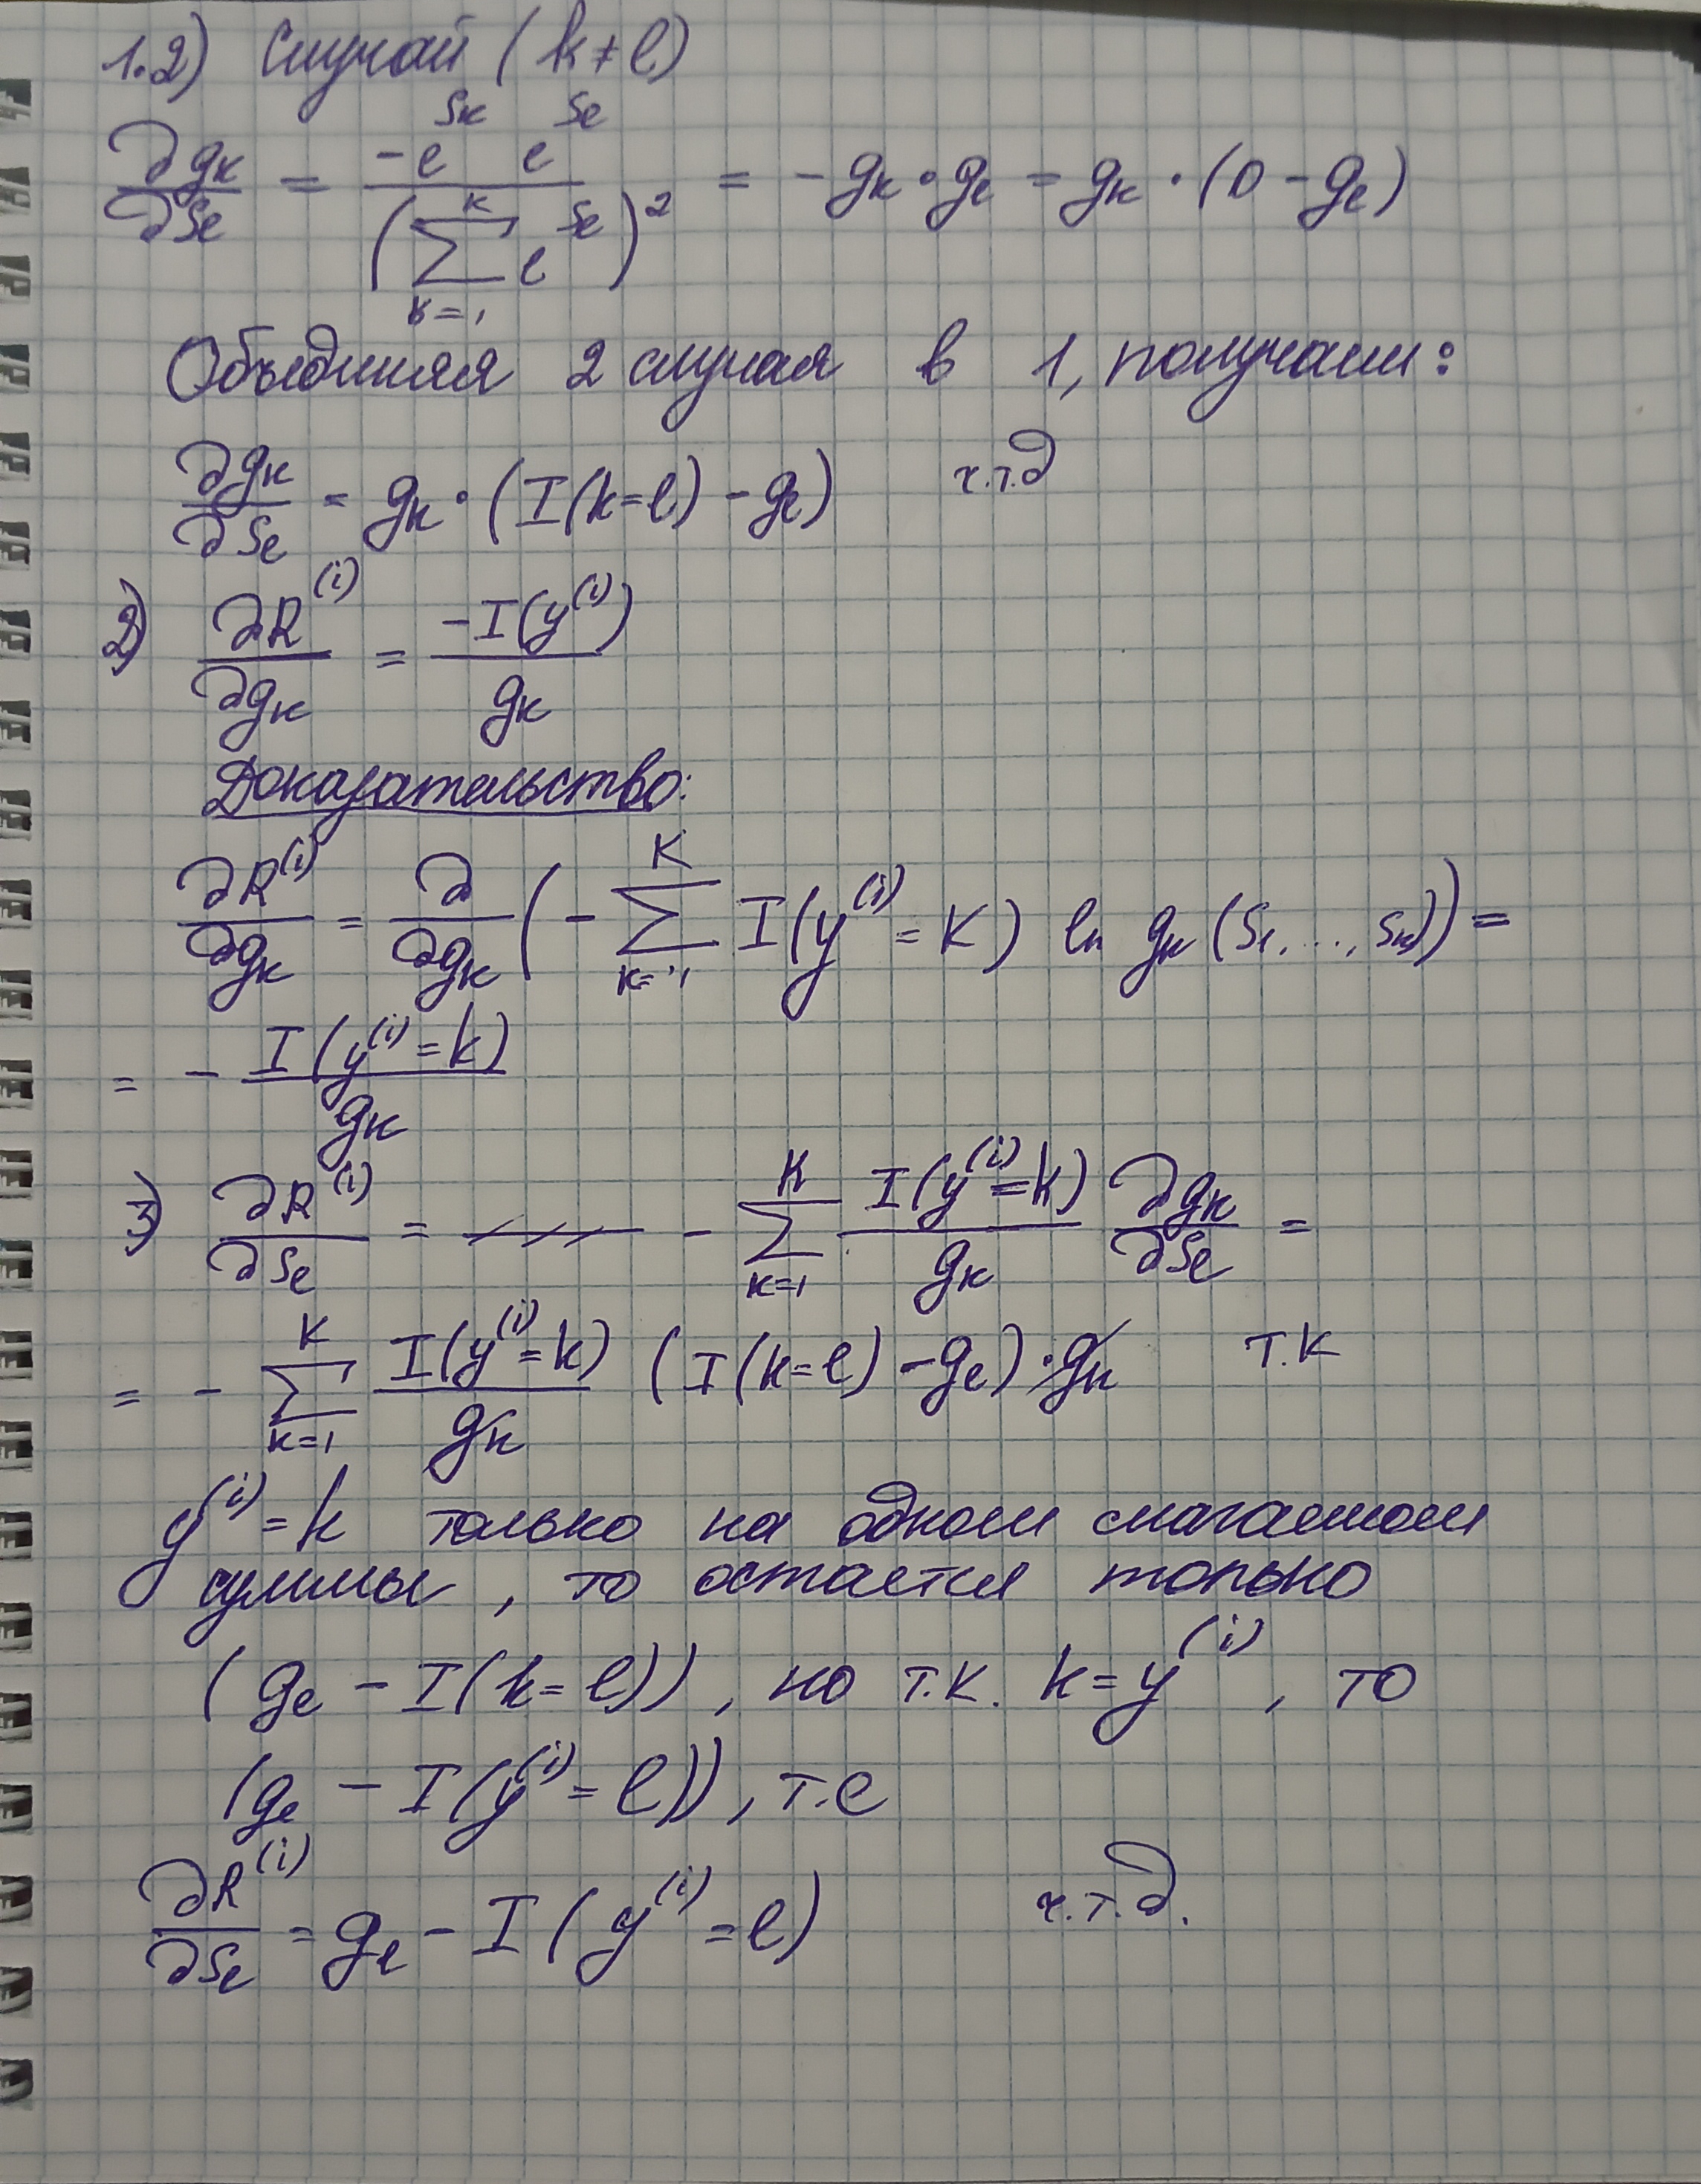 1.2) Случай (k ≠ l)
∂g_k/∂S_l = -e^{S_k} e^{S_l} / (∑_{k=1}^{K} e^{S_l})^2 = -g_k · g_l = g_k · (0 - g_l)
Объединяя 2 случая в 1, получаем:
∂g_k/∂S_l = g_k · (I(k=l) - g_l) ч.т.д
2) ∂R^{(i)}/∂g_k = -I(y^{(i)})/g_k
Доказательство:
∂R^{(i)}/∂g_k = ∂/∂g_k (- ∑_{k=1}^{K} I(y^{(i)} = K) ln g_k (S_1, ..., S_k)) =
= - I(y^{(i)} = k)/g_k
3) ∂R^{(i)}/∂S_l = - ∑_{k=1}^{K} I(y^{(i)} = k)/g_k ∂g_k/∂S_l =
= - ∑_{k=1}^{K} I(y^{(i)} = k)/g_k (I(k=l) - g_l) · g_k т.к
y^{(i)} = k только на одном слагаемом
суммы, то остается только
(g_l - I(k=l)), но т.к. k = y^{(i)}, то
(g_l - I(y^{(i)} = l)), т.е
∂R^{(i)}/∂S_l = g_l - I(y^{(i)} = l) ч.т.д.